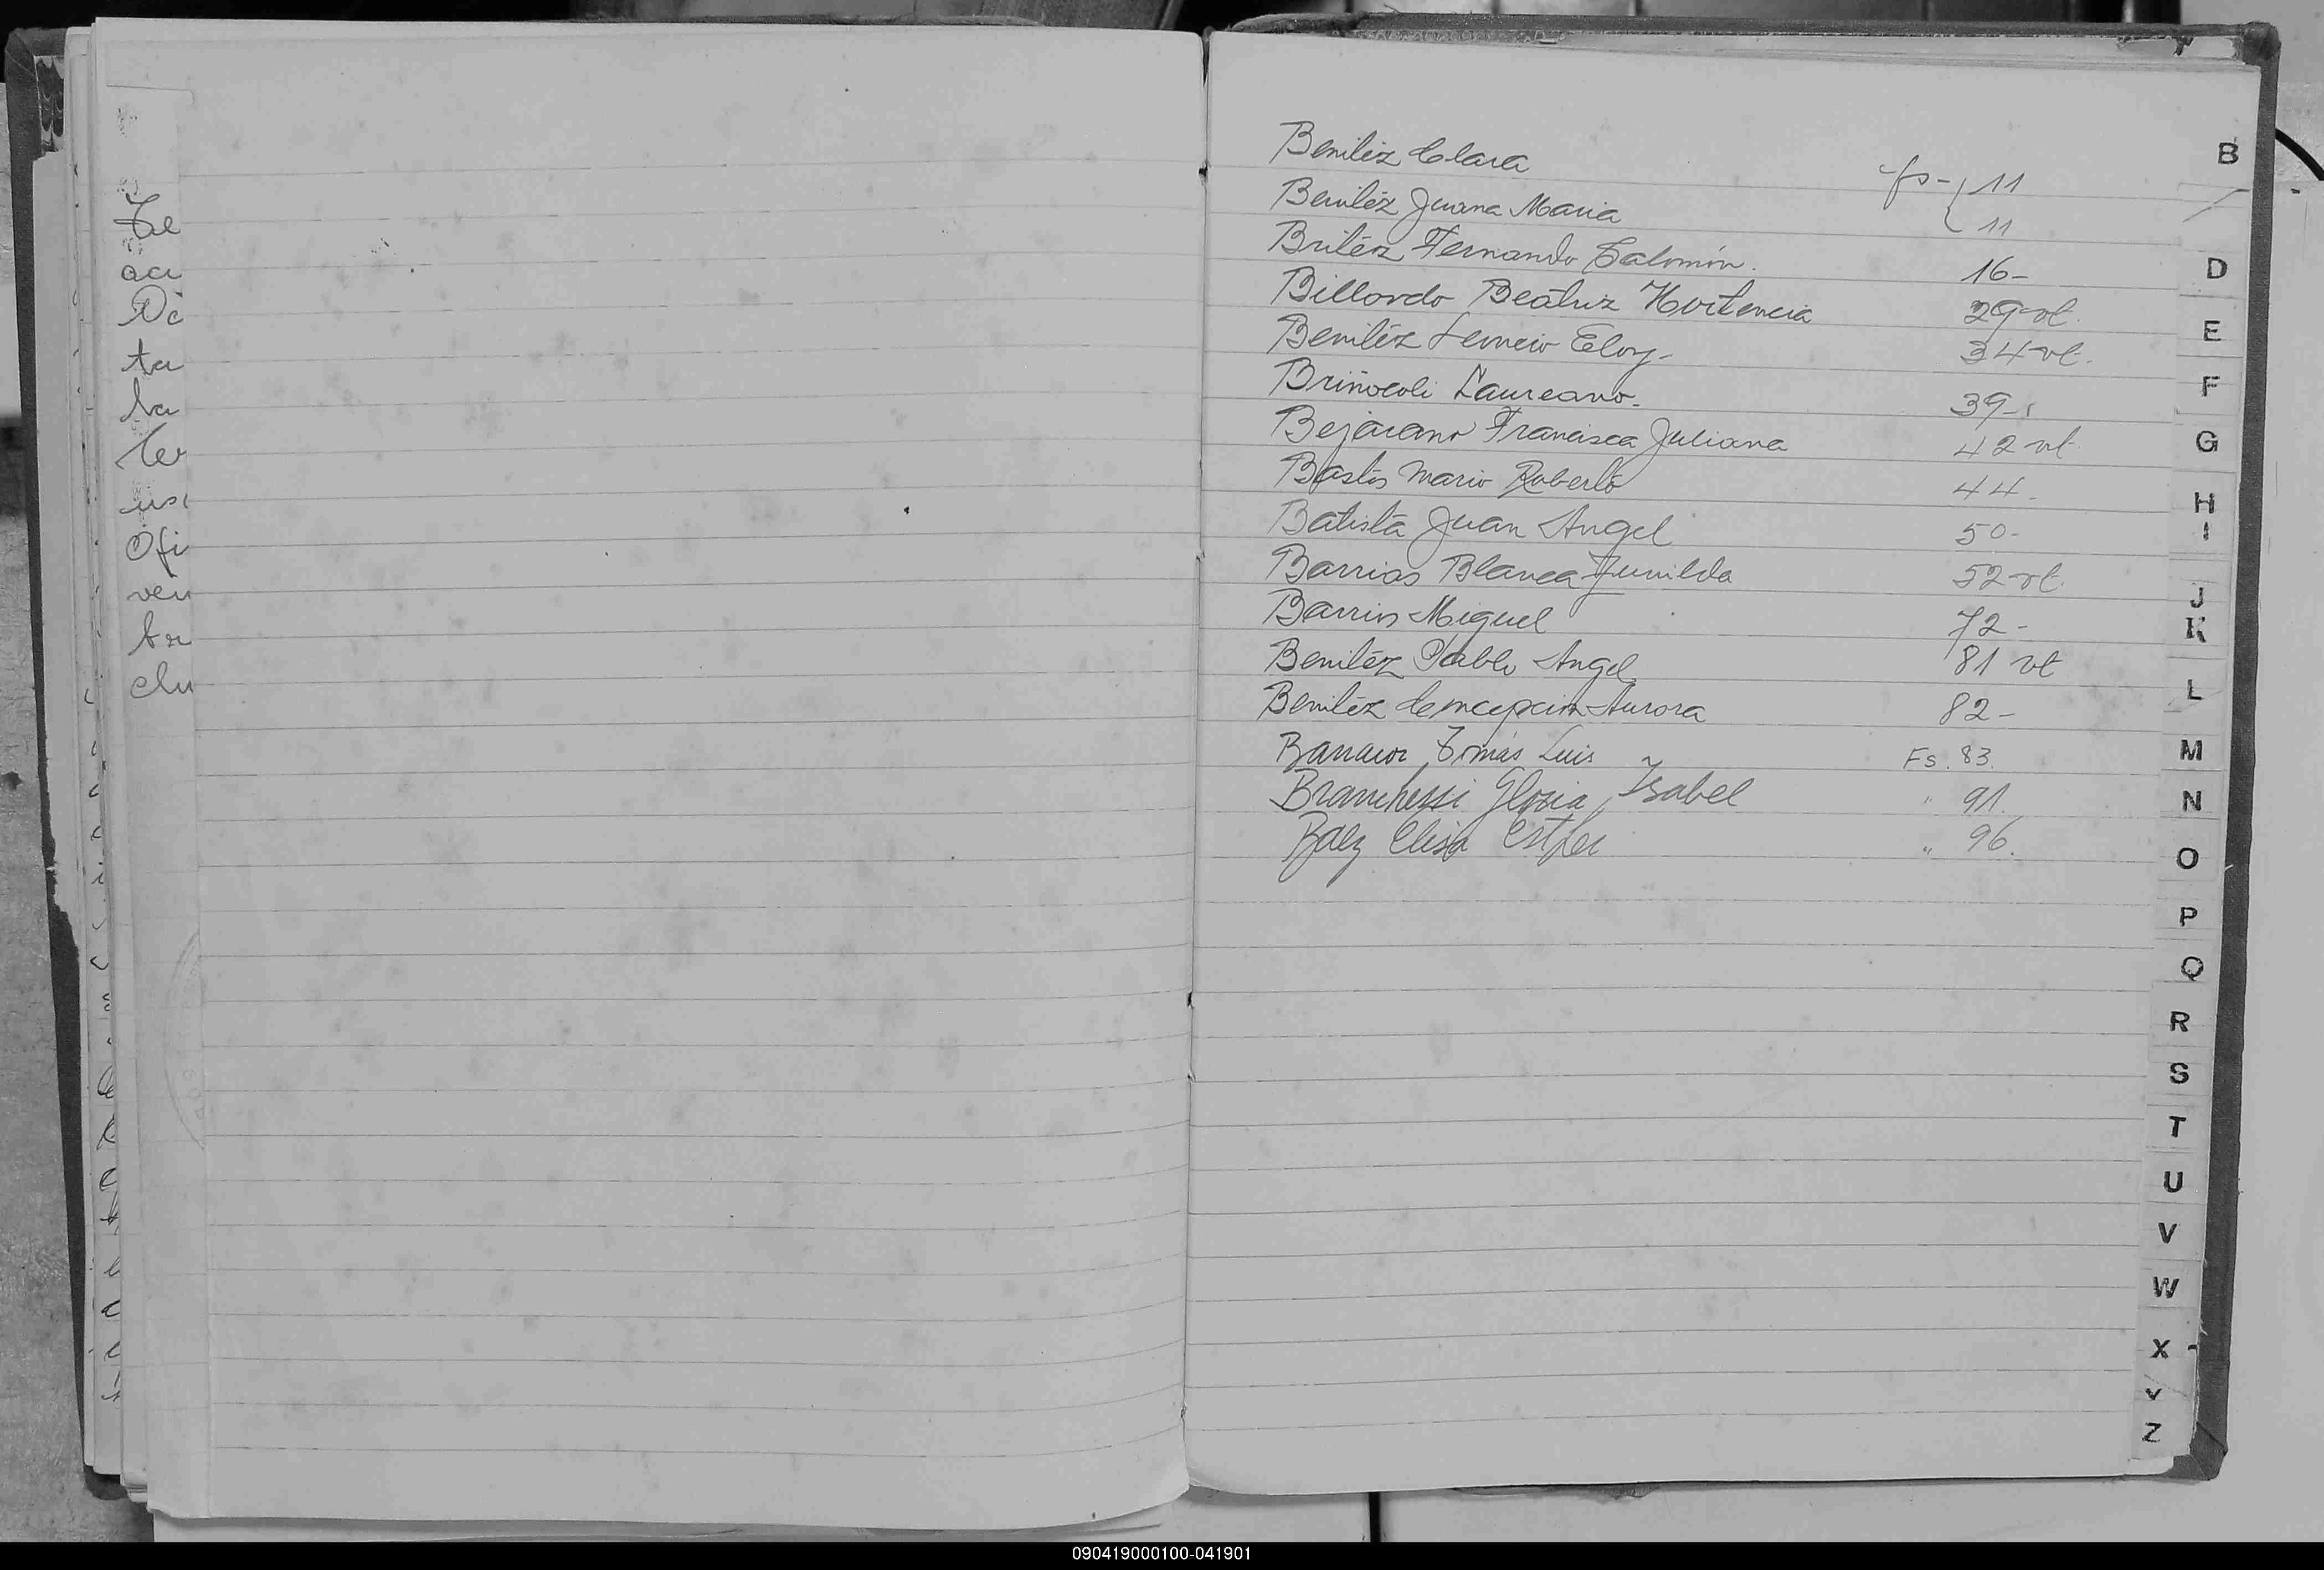 Tal
aci
De
ta
la
ter
usi
Ofi
ven
br
clu
B
Benitéz Clara fs- 11
Benitéz Juana Maria 11
Britéz Fernando Salomón. 16-
D
Billordo Beatriz Hortencia 29 vt.
E
Benitéz Eloy- 34 vt.
F
Briñocoli Laureano- 39-
G
Bejarano Francisca Juliana 42 vt
Bastos Mario Roberto 44-
H
Batista Juan Angel 50-
I
Barrios Blanca Junilda 52 vt.
J
Barrios Miguel 72-
K
Benitéz Pablo Angel 81 vt
L
Benitéz Concepcion Aurora 82-
M
Tomás Luis Fs. 83.
N
Branchessi Gloria Isabel " 91.
Baez Elisa Ester " 96.
O
P
Q
R
S
T
U
V
W
X
Y
Z
090419000100-041901